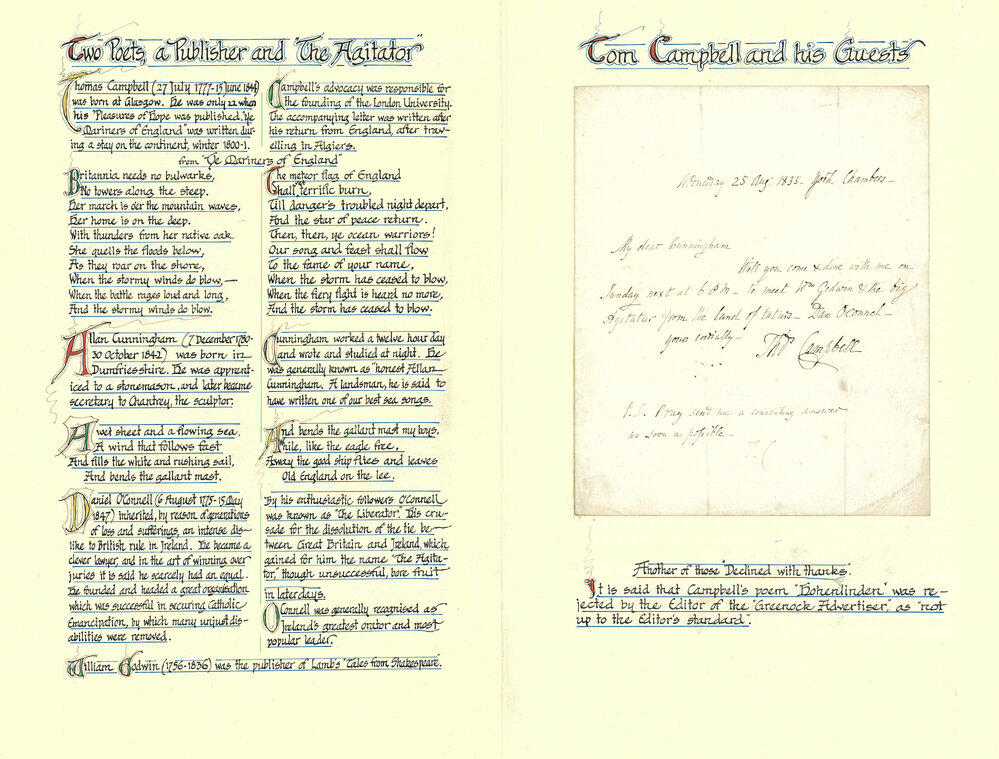 Two Poets, a Publisher and "The Agitator"
Thomas Campbell (27 July 1777-15 June 1844)
was born at Glasgow. He was only 22 when
his "Pleasures of Hope was published. "Ye
Mariners of England" was written dur-
ing a stay on the continent, winter 1800-1.
Campbell's advocacy was responsible for
the founding of the London University.
The accompanying letter was written after
his return from England, after trav-
elling in Algiers.
from "Ye Mariners of England"
Britannia needs no bulwarks,
No towers along the steep.
Her march is o'er the mountain waves,
Her home is on the deep.
With thunders from her native oak
She quells the floods below,
As they roar on the shore,
When the stormy winds do blow,—
When the battle rages loud and long,
And the stormy winds do blow.
The meteor flag of England
Shall yet terrific burn,
Till danger's troubled night depart,
And the star of peace return.
Then, then, ye ocean warriors!
Our song and feast shall flow
To the fame of your name,
When the storm has ceased to blow,
When the fiery fight is heard no more,
And the storm has ceased to blow.
Allan Cunningham (7 December 1780-
30 October 1842) was born in
Dumfriesshire. He was apprent-
iced to a stonemason, and later became
secretary to Chantrey, the sculptor.
Cunningham worked a twelve hour day
and wrote and studied at night. He
was generally known as "honest Allan
Cunningham. A landsman, he is said to
have written one of our best sea songs.
A wet sheet and a flowing sea,
A wind that follows fast
And fills the white and rushing sail,
And bends the gallant mast.
And bends the gallant mast my boys,
While, like the eagle free,
Away the good ship flies and leaves
Old England on the lee.
Daniel O'Connell (6 August 1775-15 May
1847) inherited, by reason of generations
of loss and sufferings, an intense dis-
like to British rule in Ireland. He became a
clever lawyer, and in the art of winning over
juries it is said he scarcely had an equal.
He founded and headed a great organisation
which was successful in securing Catholic
Emancipation, by which many unjust dis-
abilities were removed.
By his enthusiastic followers O'Connell
was known as "The Liberator." His cru-
sade for the dissolution of the tie be-
tween Great Britain and Ireland, which
gained for him the name "The Agita-
tor," though unsuccessful, bore fruit
in later days.
O'Connell was generally recognised as
Ireland's greatest orator and most
popular leader.
William Godwin (1756-1836) was the publisher of Lamb's "Tales from Shakespeare."
Tom Campbell and his Guests
Wednesday 25 Aug 1835- York Chambers-
My dear Cunningham
Will you come & dine with me on
Sunday next at 6 P M- to meet Wm Godwin & the big
Agitator from the land of taters- Dan Oconnel-
yours cordially-
Thos Campbell
P.S. Pray send me a consenting answer
as soon as possible-
T C
Another of those "Declined with thanks".
It is said that Campbell's poem "Hohenlinden" was re-
jected by the Editor of the "Greenock Advertiser," as "not
up to the Editor's standard".